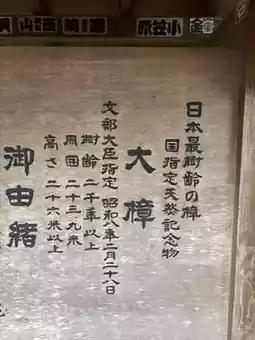 小笠原
日本最樹齢の樟
国指定天然記念物
大樟
文部大臣指定 昭和八年二月二十八日
樹齢 二千年以上
周囲 二十三.九米
高さ 二十六米以上
御由緒